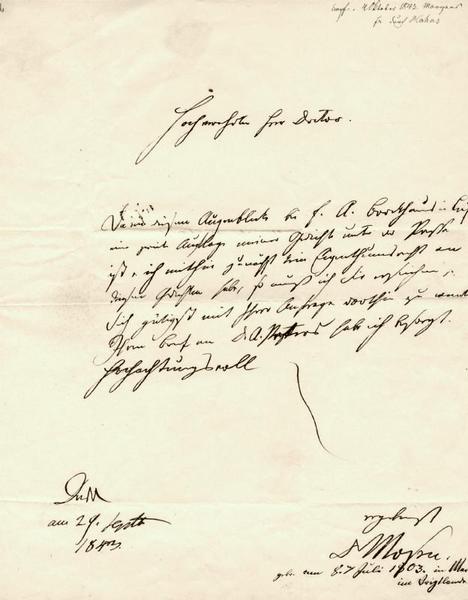 4 Oktober 1843.
Hochverehrter Herr Doctor.
Da in diesem Augenblicke bei F. A. Brockhaus in
eine zweite Auflage meiner Gedichte unter der Presse
ist, ich mithin zunächst kein Eigenthumsrecht an
diesen Gedichten habe, so muß ich Sie ersuchen,
Sich gütigst mit Ihrer Anfrage dorthin zu
Ihren Brief an Dr. A. Peters habe ich besorgt.
Hochachtungsvoll
am 29. Septb
1843.
ergebenst
Dr Mosen.
geb. am 8. Juli 1803. in Mar
im Voigtlande